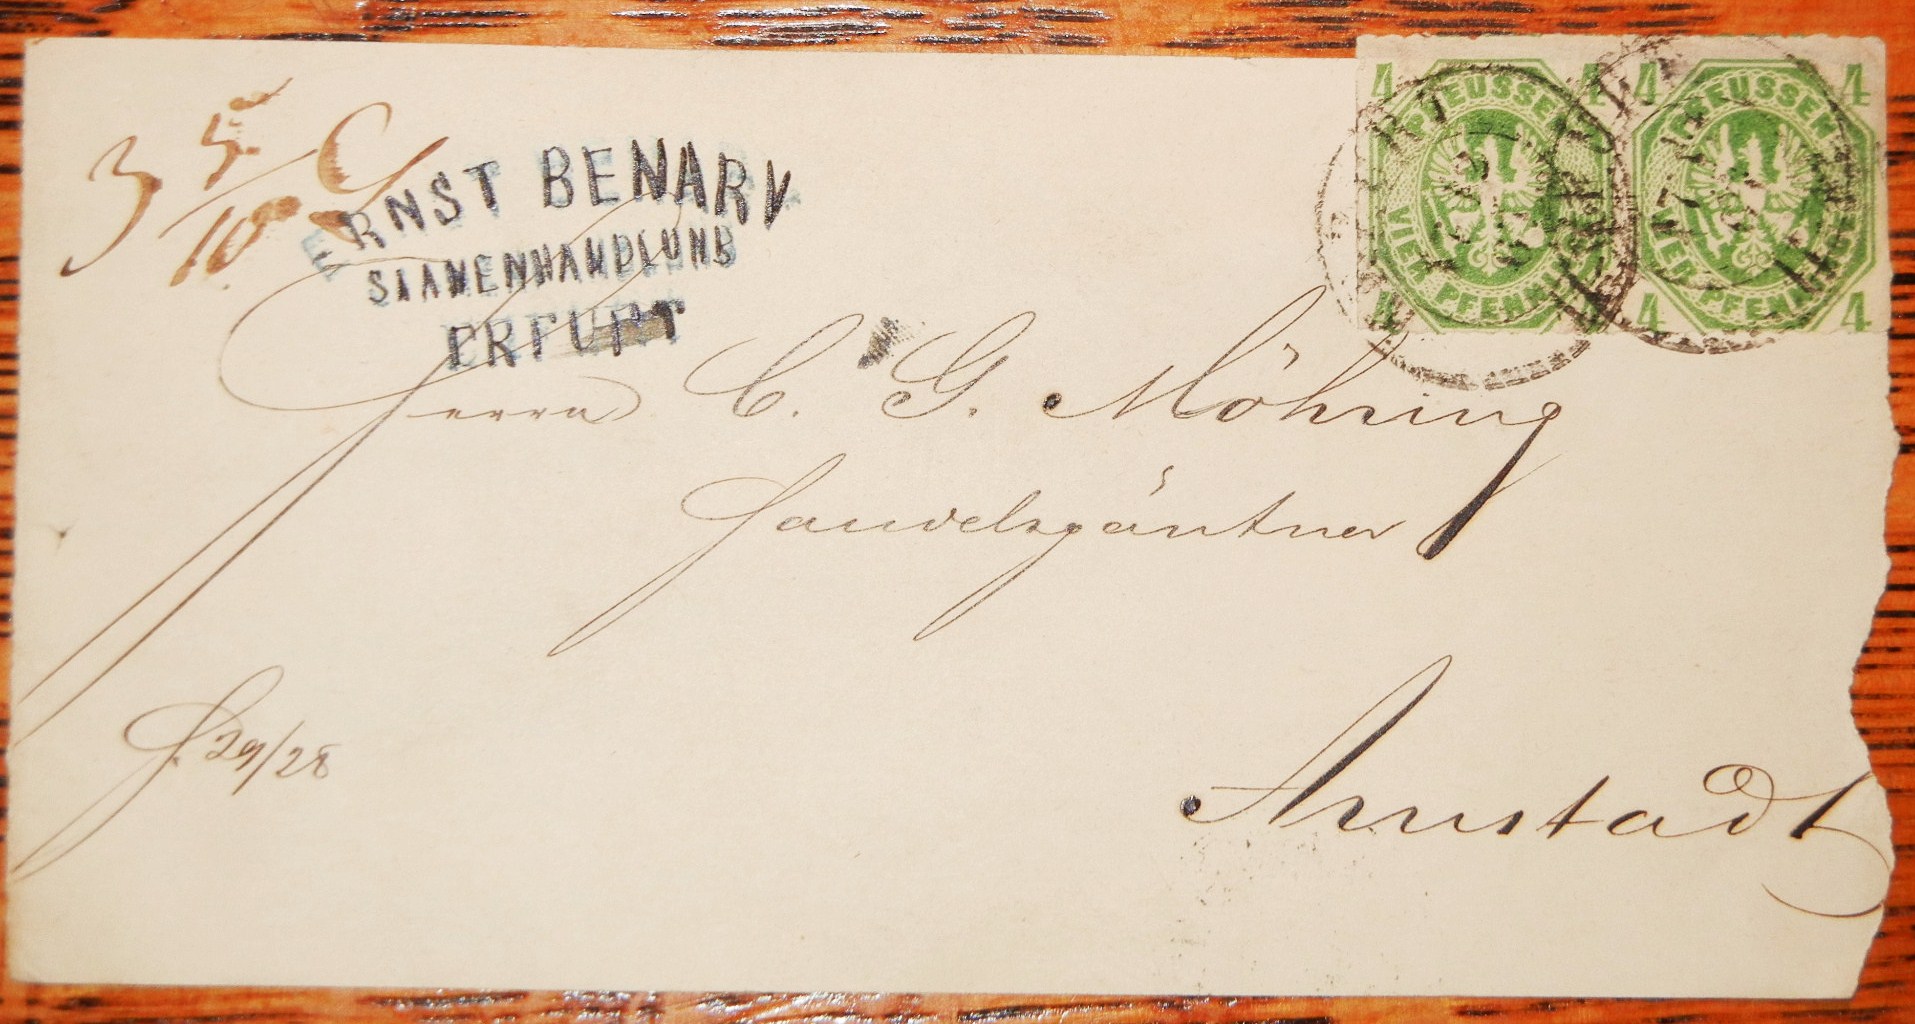 3 5/10
ERNST BENARY
SAAMENHANDLUNG
ERFURT
4 PREUSSEN 4
VIER PFENNINGE
4 4
4 PREUSSEN 4
VIER PFENNINGE
4 4
Herrn C. G. Möhring
Handelsgärtner
Arnstadt
29/28